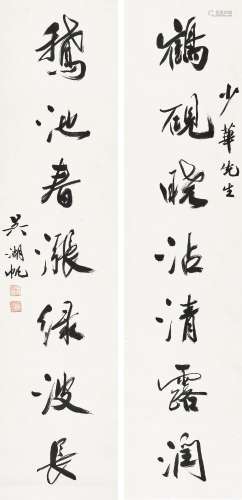 少華先生
鶴硯曉沾清露潤
鵝池春漲绿波長
吴湖帆